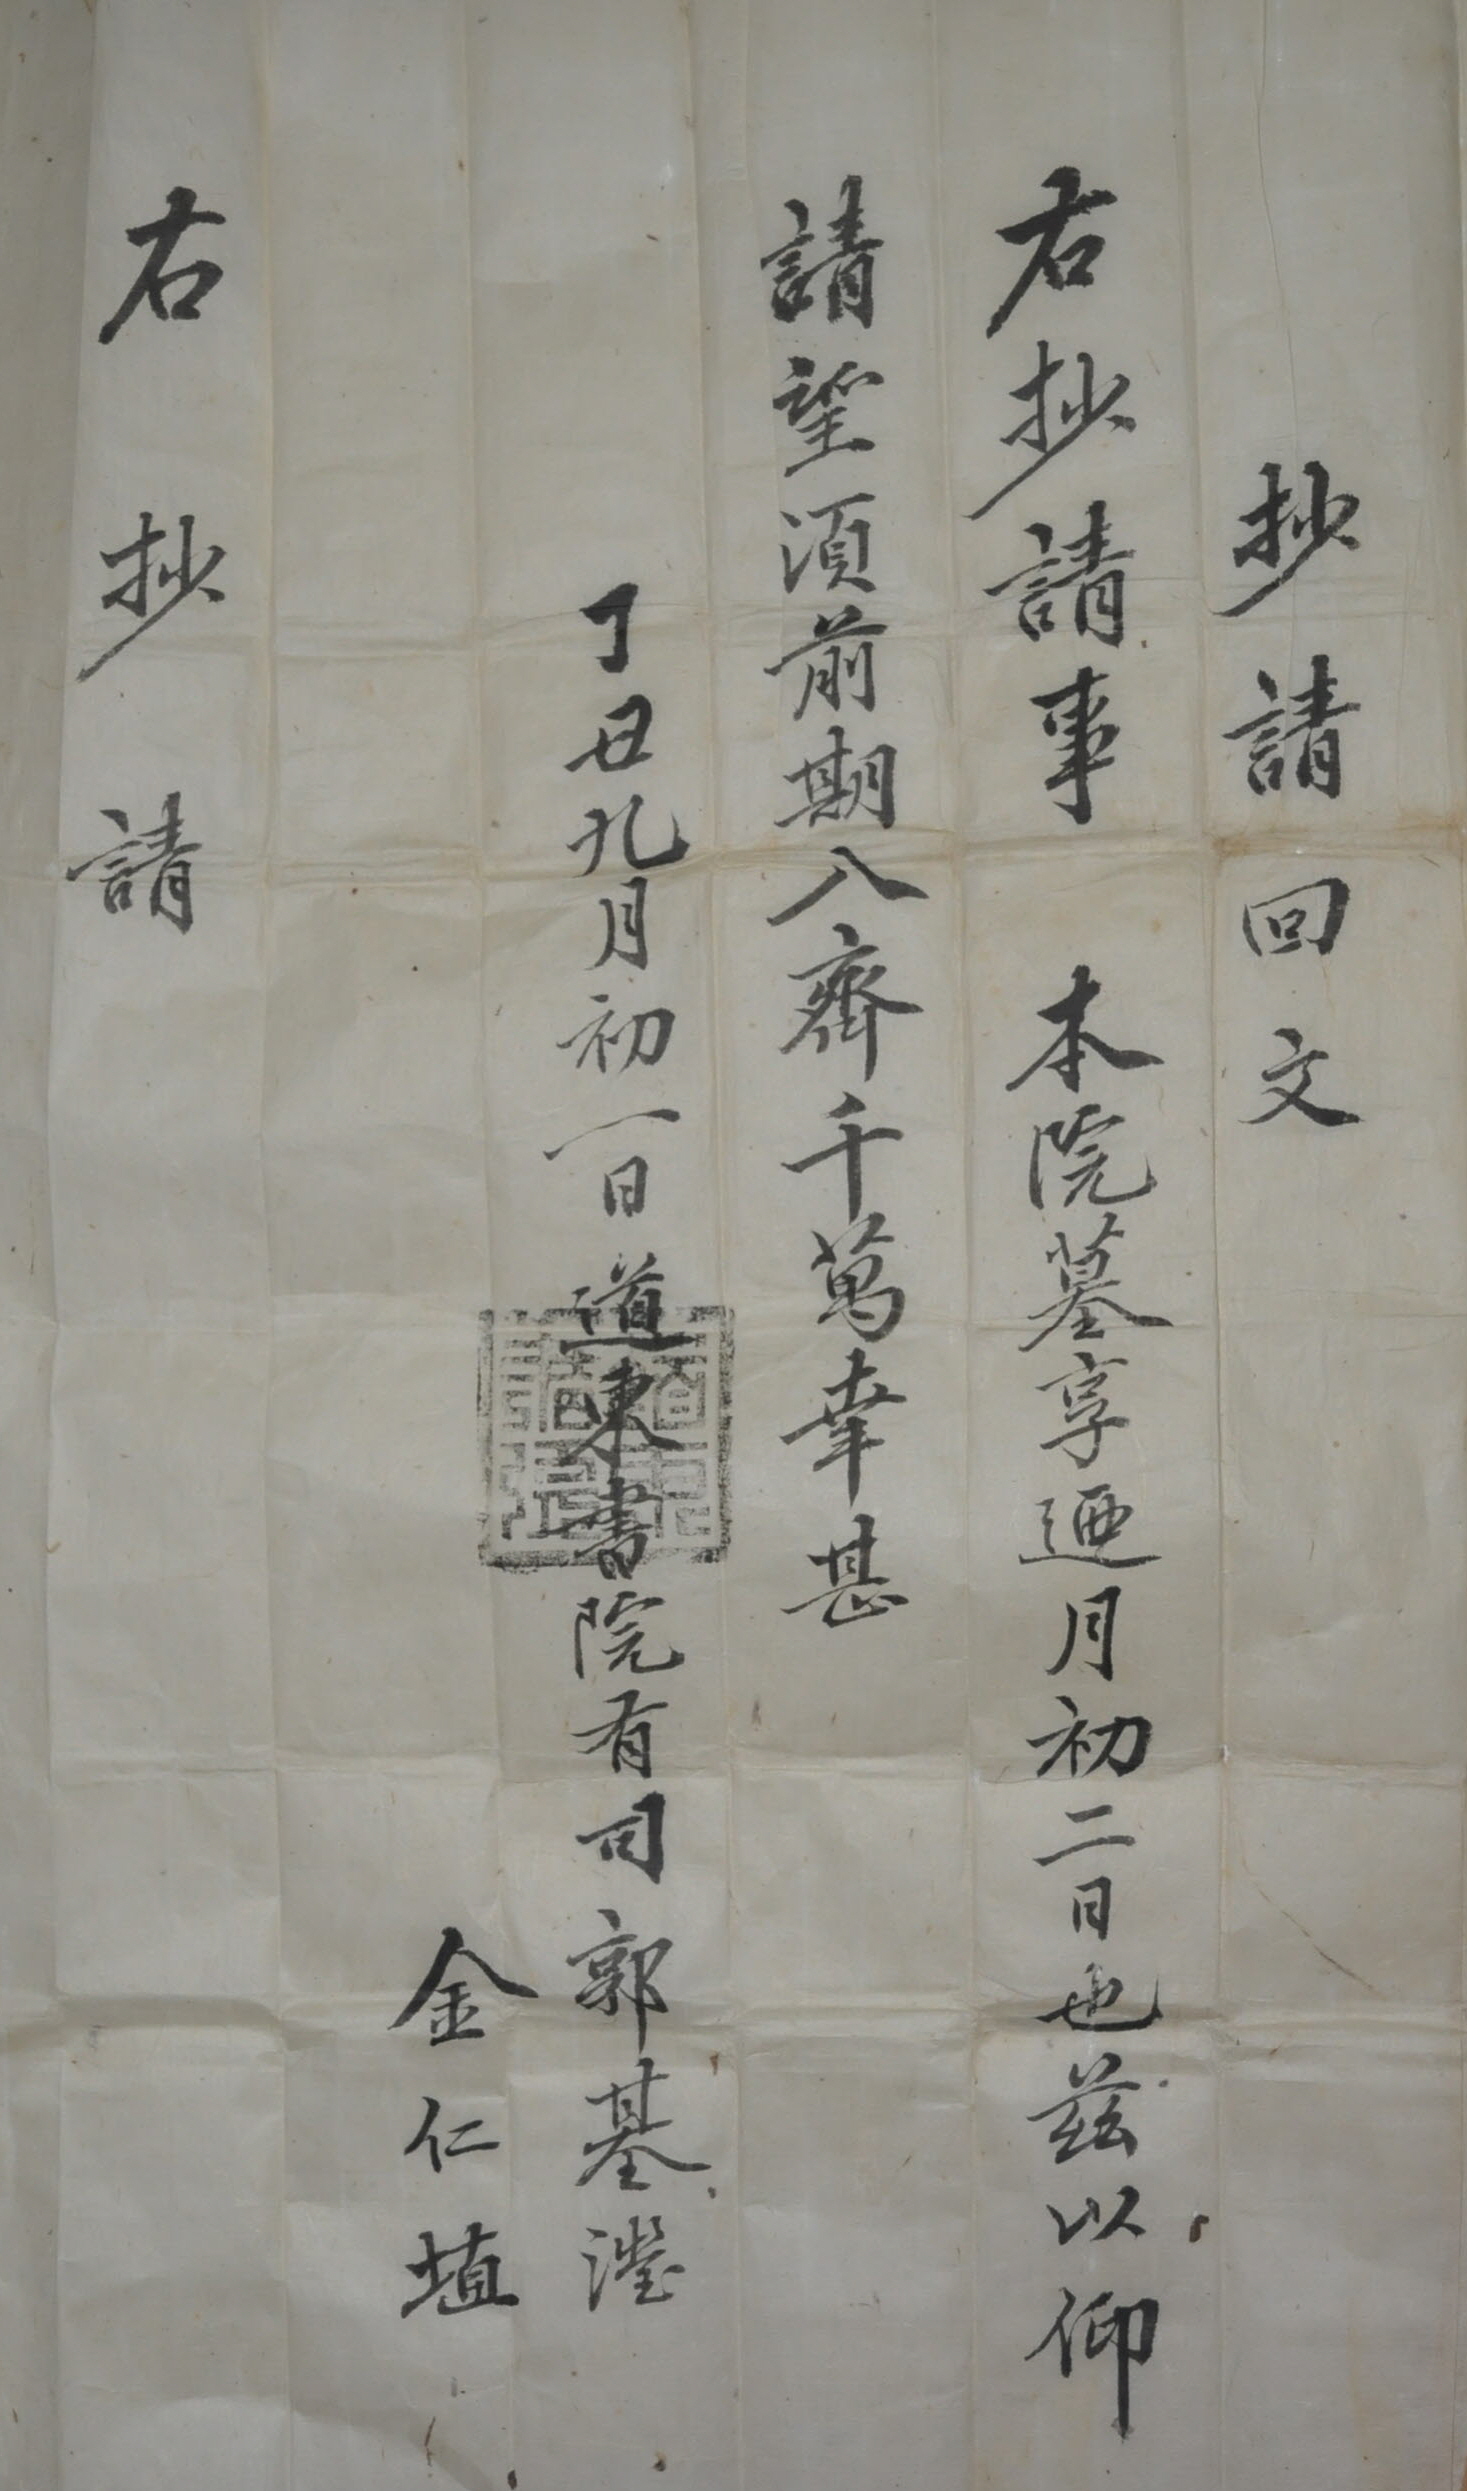 抄請回文
右抄請事 本院墓享迺月初二日也茲以仰
請望須前期入齊千萬幸甚
丁丑九月初一日道東書院有司郭基瀅
金仁埴
右抄請